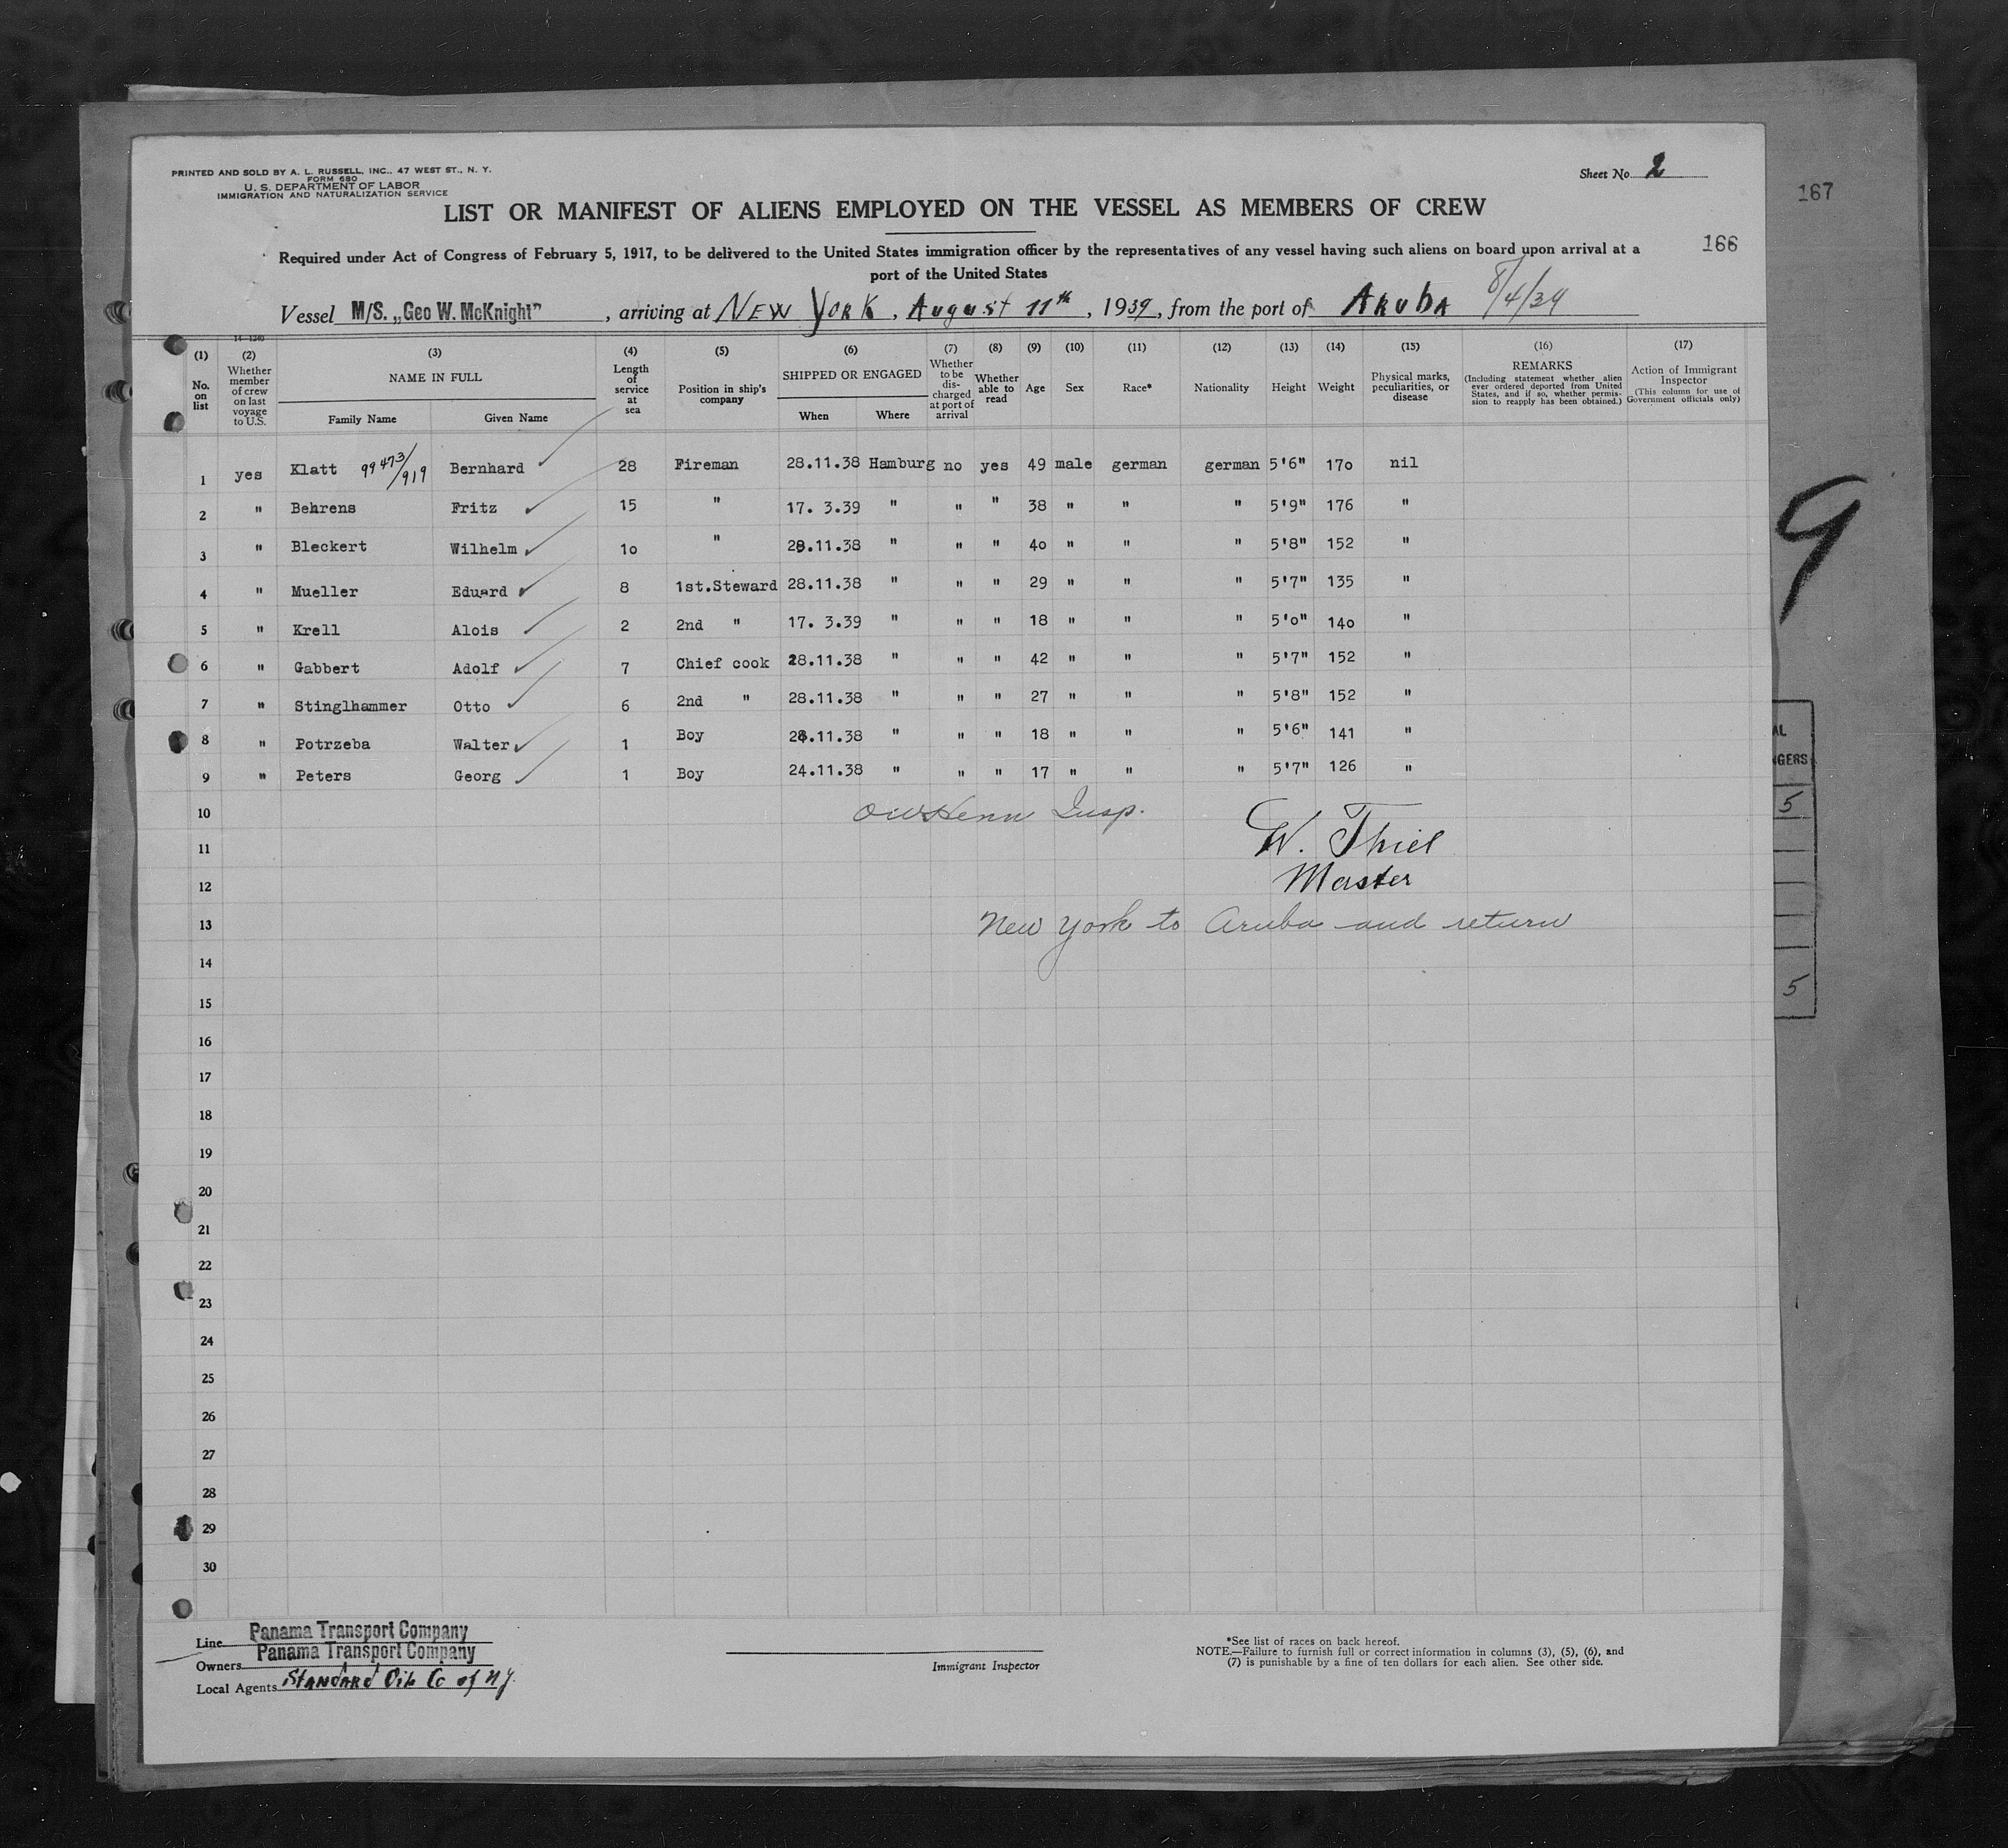 PRINTED AND SOLD BY A. L. RUSSELL, INC., 47 WEST ST., N. Y.
FORM 680
U. S. DEPARTMENT OF LABOR
IMMIGRATION AND NATURALIZATION SERVICE
Sheet No. 2
167
LIST OR MANIFEST OF ALIENS EMPLOYED ON THE VESSEL AS MEMBERS OF CREW
166
Required under Act of Congress of February 5, 1917, to be delivered to the United States immigration officer by the representatives of any vessel having such aliens on board upon arrival at a
port of the United States
Vessel M/S. „Geo W. McKnight" , arriving at NEW YORK , August 11th , 1939 , from the port of ARUBA 8/4/39
14-1240
(1) (2) (3) (4) (5) (6) (7) (8) (9) (10) (11) (12) (13) (14) (15) (16) (17)
No. on list | Whether member of crew on last voyage to U.S. | NAME IN FULL Family Name Given Name | Length of service at sea | Position in ship's company | SHIPPED OR ENGAGED When Where | Whether to be discharged at port of arrival | Whether able to read | Age | Sex | Race* | Nationality | Height | Weight | Physical marks, peculiarities, or disease | REMARKS (Including statement whether alien ever ordered deported from United States, and if so, whether permission to reapply has been obtained.) | Action of Immigrant Inspector (This column for use of Government officials only)
1 yes Klatt 99473/919 Bernhard 28 Fireman 28.11.38 Hamburg no yes 49 male german german 5'6" 17o nil
2 " Behrens Fritz 15 " 17. 3.39 " " " 38 " " " 5'9" 176 "
3 " Bleckert Wilhelm 1o " 28.11.38 " " " 4o " " " 5'8" 152 "
4 " Mueller Eduard 8 1st.Steward 28.11.38 " " " 29 " " " 5'7" 135 "
5 " Krell Alois 2 2nd " 17. 3.39 " " " 18 " " " 5'o" 14o "
6 " Gabbert Adolf 7 Chief cook 28.11.38 " " " 42 " " " 5'7" 152 "
7 " Stinglhammer Otto 6 2nd " 28.11.38 " " " 27 " " " 5'8" 152 "
8 " Potrzeba Walter 1 Boy 28.11.38 " " " 18 " " " 5'6" 141 "
9 " Peters Georg 1 Boy 24.11.38 " " " 17 " " " 5'7" 126 "
10 Insp.
11 W. Thiel
12 Master
13 New York to Aruba and return
14
15
16
17
18
19
20
21
22
23
24
25
26
27
28
29
30
9
NGERS
5
5
Line Panama Transport Company
Owners Panama Transport Company
Local Agents STANDARD OIL Co of NJ.
Immigrant Inspector
*See list of races on back hereof.
NOTE.—Failure to furnish full or correct information in columns (3), (5), (6), and
(7) is punishable by a fine of ten dollars for each alien. See other side.